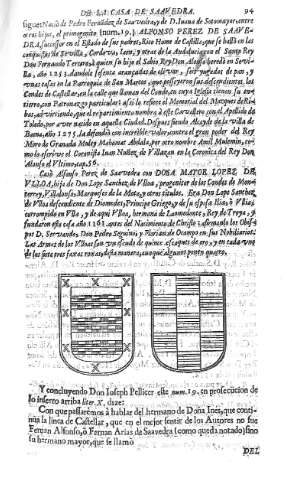 DE LA CASA DE SAAVEDRA. 94
sigue: Nació de Pedro Fernandez de Saavedra, y de D. Juana de Sotomayor, entre
otros hijos, el primogenito (num. 19.) ALFONSO PEREZ DE SAAVE-
DRA, sucessor en el Estado de sus padres, Rico Home de Castilla, que se hallò en las
conquistas de Sevilla, Cordova, Leon, y otras de la Andaluzia con el Santo Rey
Don Fernando Tercero, à quien su hijo el Sabio Rey Don Alfonso heredò en Sevi-
lla, año 1253. dandole sesenta arançadas de olivar, seis yugadas de pan, y
unas casas en la Parroquia de San Marcos, que posseyeron sus descendientes, los
Condes de Castellar, en la calle que llaman del Conde, en cuya Iglesia tienen su en-
tierro, con Patronazgo particular: assi lo refiere el Memorial del Marques de Ri-
bas, advirtiendo, que el repartimiento nombra à este Cavallero con el Apellido de
Toledo, por aver nacido en aquella Ciudad. Despues siendo Alcayde de la Villa de
Baena, año 1275. la defendiò con increible valor contra el gran poder del Rey
Moro de Granada Muley Mahomat Abdala, por otro nombre Amil Mulemin, co-
mo lo escrive el Coronista Juan Nuñez de Villazan en la Coronica del Rey Don
Alfonso el Ultimo, cap. 19.
Casò Alfonso Perez de Saavedra con DOÑA MAYOR LOPEZ DE
ULLOA, hija de Don Lope Sanchez de Ulloa, progenitor de los Condes de Mon-
terrey, y Villalonso, Marqueses de la Mota, y otros titulos. Era Don Lope Sanchez
de Ulloa descendiente de Diomedes, Principe Griego, y de su esposa
corrompido en Ulla, y de aqui Ulloa, hermana de Laomedonte, Rey de Troya, y
fundaron esta casa año 1162. antes del Nacimiento de Christo: afirmanlo los Obis-
pos D. Servando, Don Pedro Seguino, y Florian de Ocampo en sus Nobiliarios.
Las Armas de los Ulloas son un escudo de quince escaques de oro, y en cada uno
de los siete tres faxas roxas, de esta manera, aunque algunos ponen quatro.
Y concluyendo Don Joseph Pellicer este num. 19. en prosecucion de
lo inserto arriba liter. X. dize:
Con que passarèmos à hablar del hermano de Doña Inès, que conti-
nùa la linea de Castellar, que en el mejor sentir de los Autores no fue
Fernan Alfonso, ò Fernan Arias de Saavedra (como queda notado) sino
su hermano mayor, que se llamò
DEL